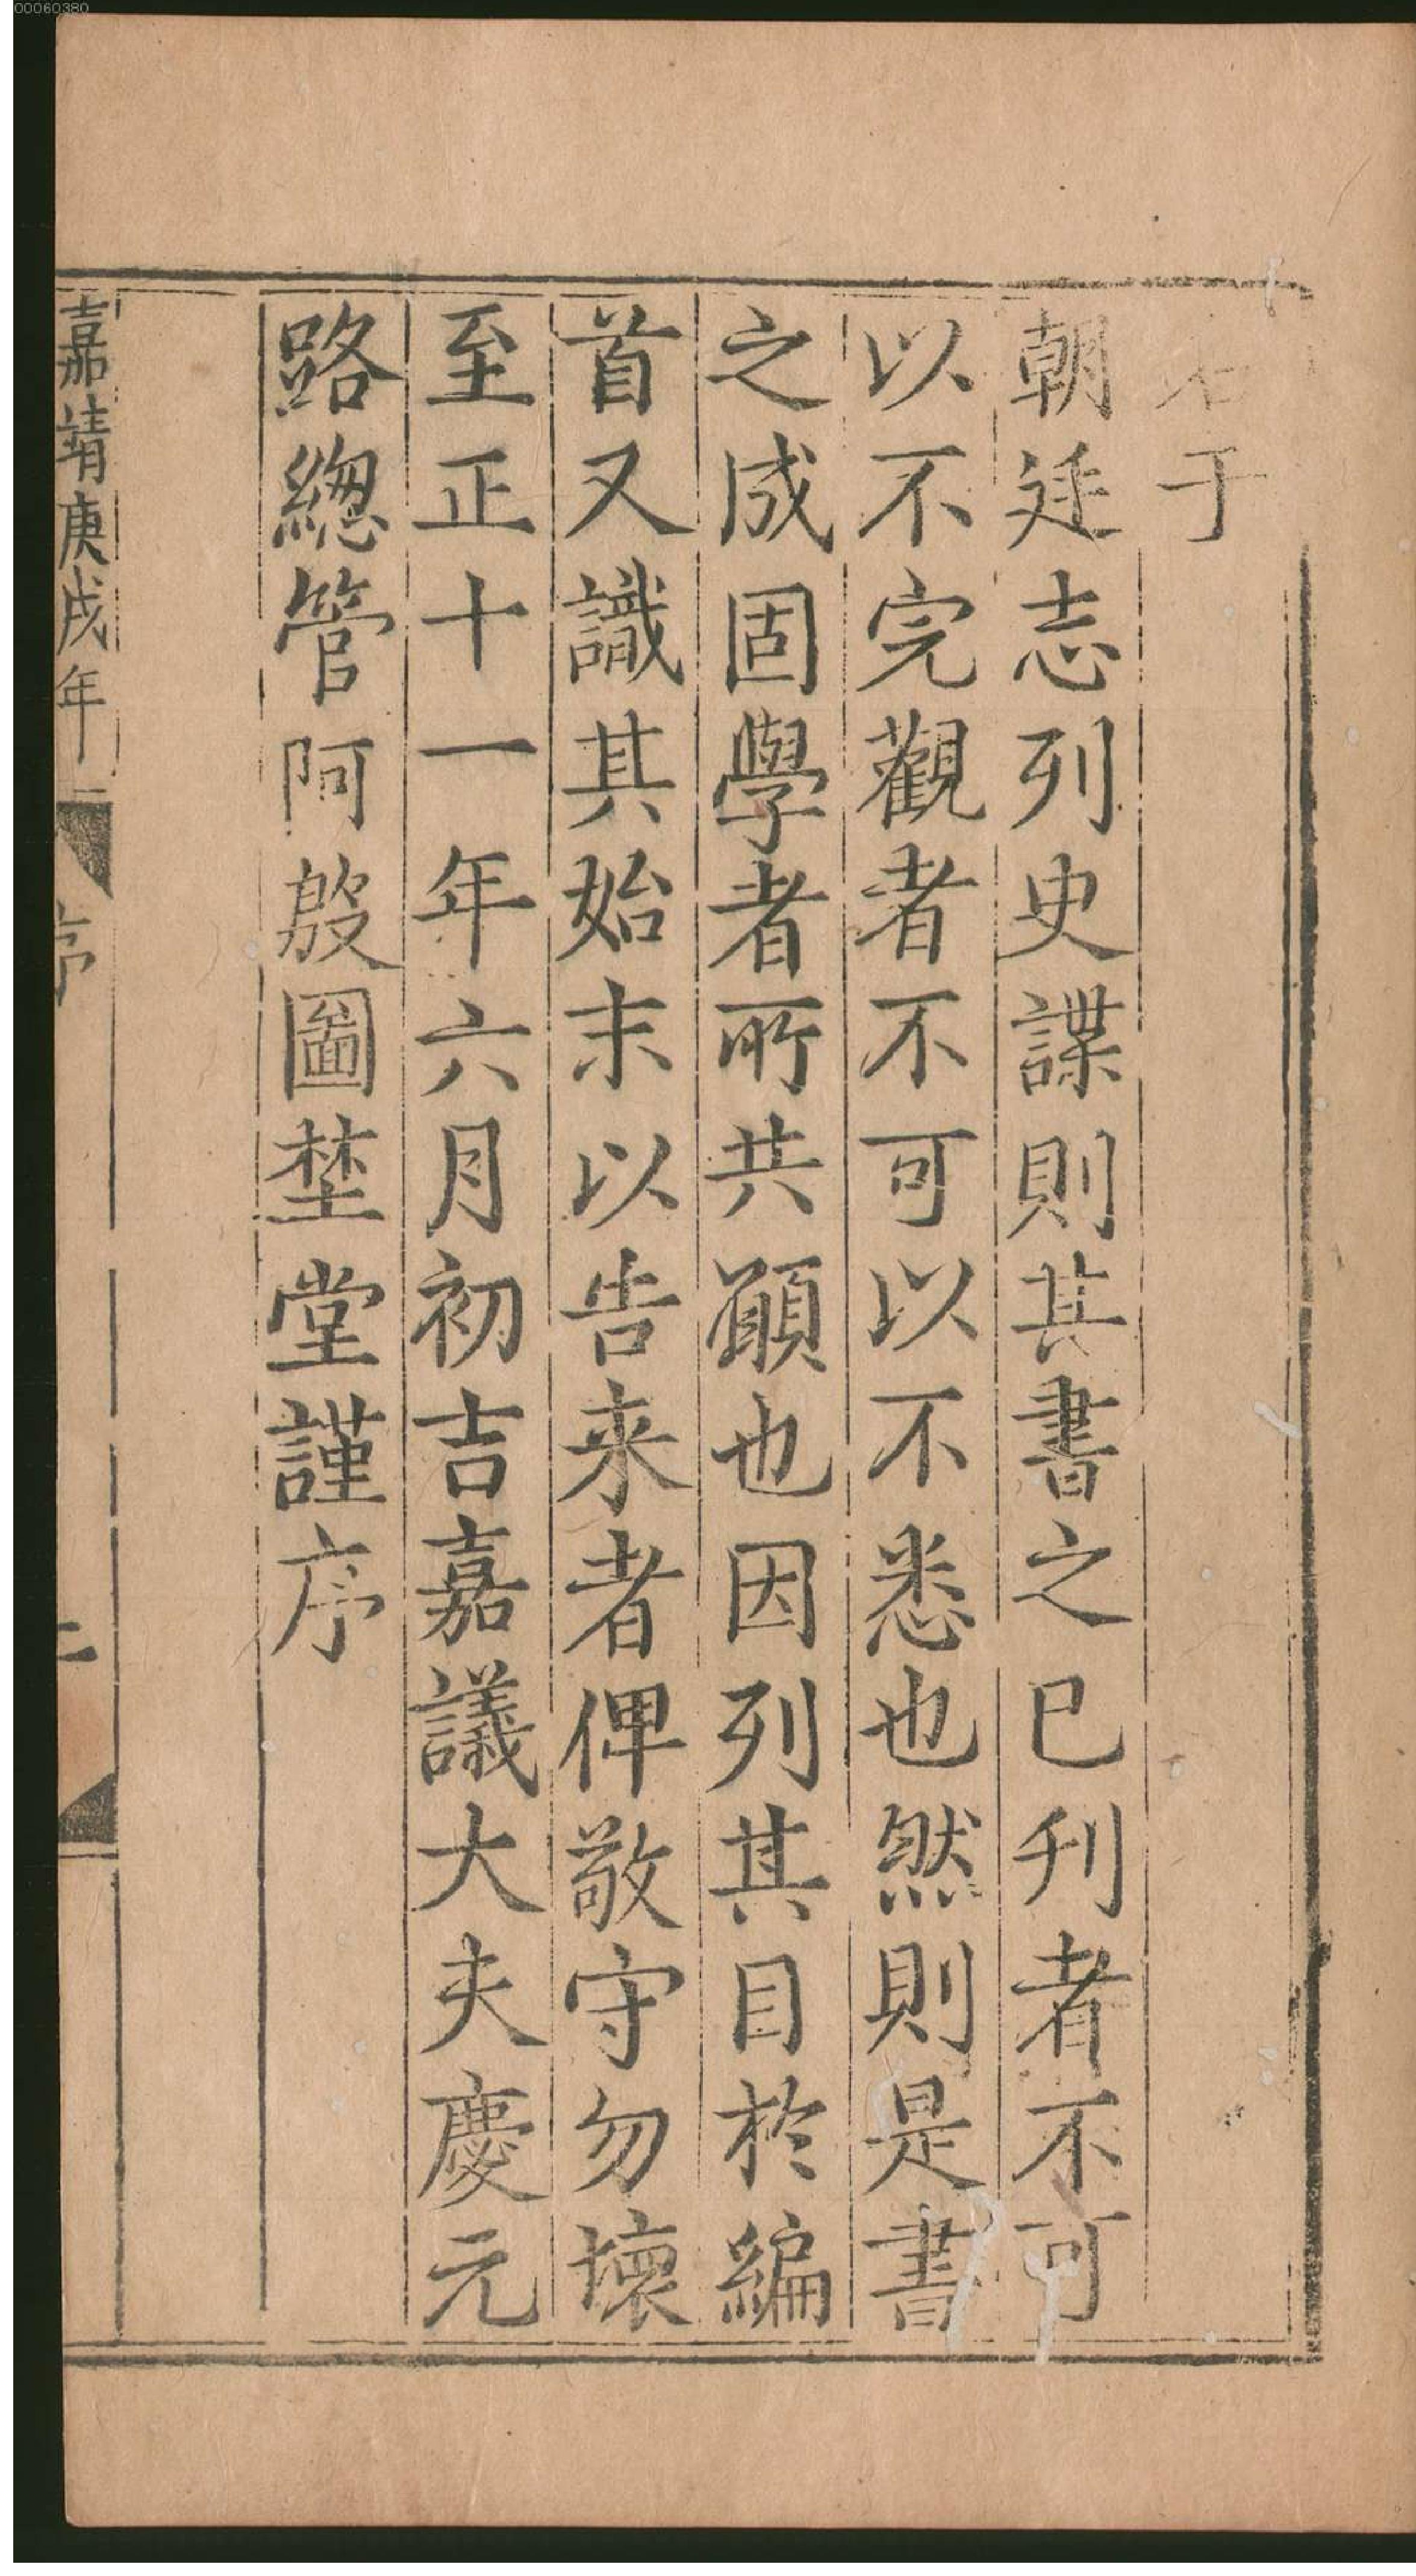 于
朝廷志列史諜則其書之已刋者不可
以不完觀者不可以不悉也然則是書
之成固學者所共願也因列其目於編
首又識其始末以告来者俾敬守勿壞
至正十一年六月初吉嘉議大夫慶元
路緫管阿殷圖埜堂謹序
嘉靖庚戌年
序
二
00060380